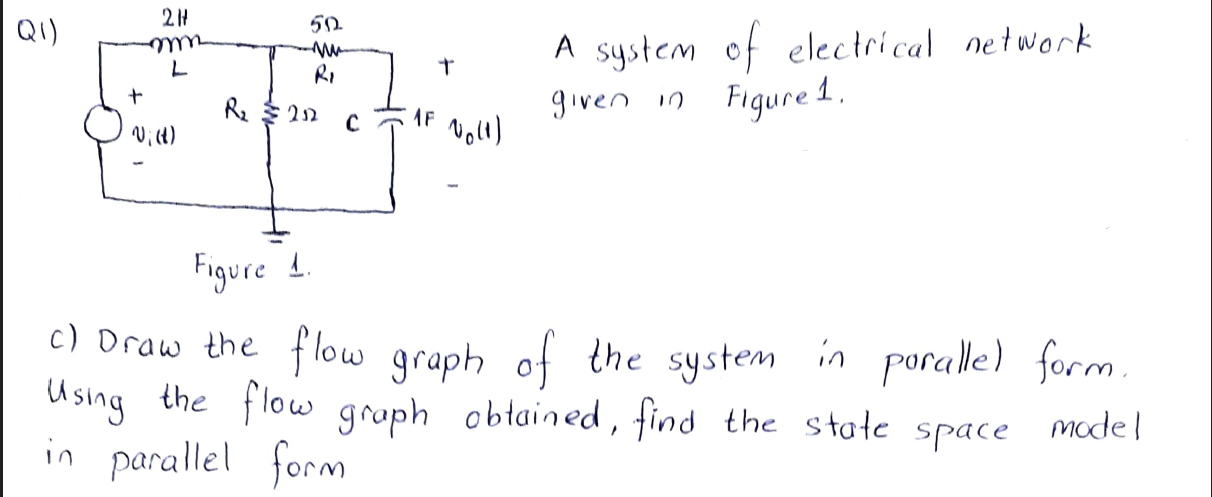 Q1)
2H
L
5Ω
R1
R2
2Ω
C
1F
+
Vi(t)
-
+
Vo(t)
-
Figure 1.
A system of electrical network
given in Figure 1.
c) Draw the flow graph of the system in parallel form.
Using the flow graph obtained, find the state space model
in parallel form